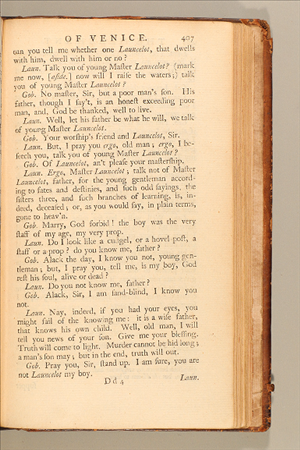 OF VENICE. 407
can you tell me whether one Launcelot, that dwells
with him, dwell with him or no?
Laun. Talk you of young Master Launcelot? (mark
me now, [aside.] now will I raise the waters;) talk
you of young Master Launcelot?
Gob. No master, Sir, but a poor man's son. His
father, though I say't, is an honest exceeding poor
man, and, God be thanked, well to live.
Laun. Well, let his father be what he will, we talk
of young Master Launcelot.
Gob. Your worship's friend and Launcelot, Sir.
Laun. But, I pray you ergo, old man; ergo, I be-
seech you, talk you of young Master Launcelot?
Gob. Of Launcelot, an't please your mastership.
Laun. Ergo, Master Launcelot; talk not of Master
Launcelot, father, for the young gentleman accord-
ing to fates and destinies, and such odd sayings, the
sisters three, and such branches of learning, is, in-
deed, deceased; or, as you would say, in plain terms,
gone to heav'n.
Gob. Marry, God forbid! the boy was the very
staff of my age, my very prop.
Laun. Do I look like a cudgel, or a hovel-post, a
staff or a prop? do you know me, father?
Gob. Alack the day, I know you not, young gen-
tleman; but, I pray you, tell me, is my boy, God
rest his soul, alive or dead?
Laun. Do you not know me, father?
Gob. Alack, Sir, I am sand-blind, I know you
not.
Laun. Nay, indeed, if you had your eyes, you
might fail of the knowing me: it is a wise father,
that knows his own child. Well, old man, I will
tell you news of your son. Give me your blessing.
Truth will come to light. Murder cannot be hid long;
a man's son may; but in the end, truth will out.
Gob. Pray you, Sir, stand up. I am sure, you are
not Launcelot my boy.
D d 4 Laun.